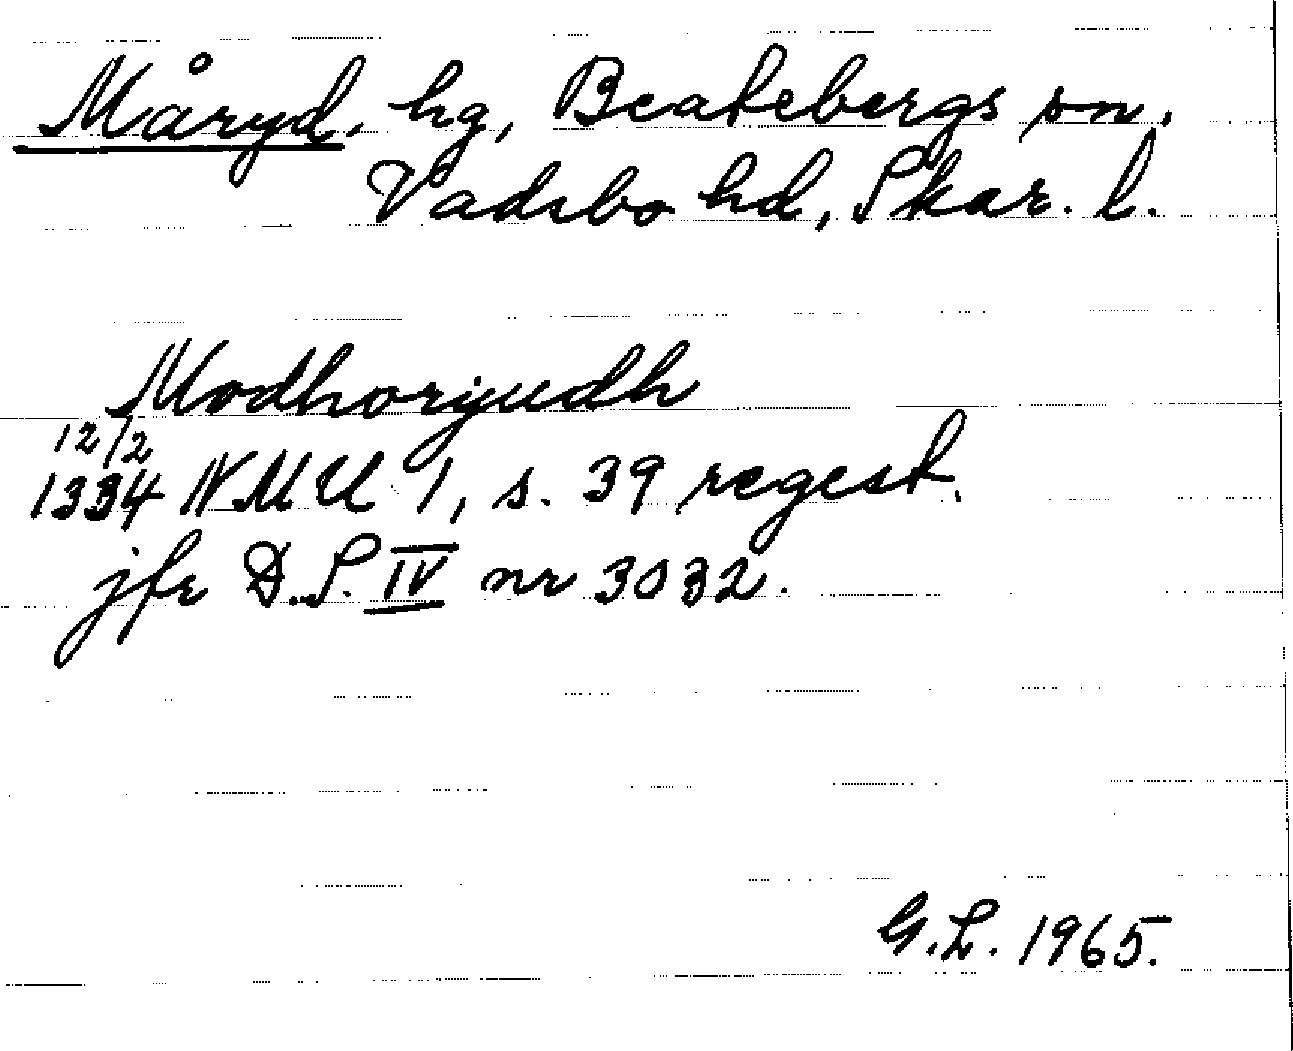 Måryd, hg, Beatebergs sn.
Vadsbo hd, Skar. l.
Modhoryudh
12/2
1334 NMU 1, s. 39 regest.
jfr D.S. IV nr 3032.
G.L. 1965.